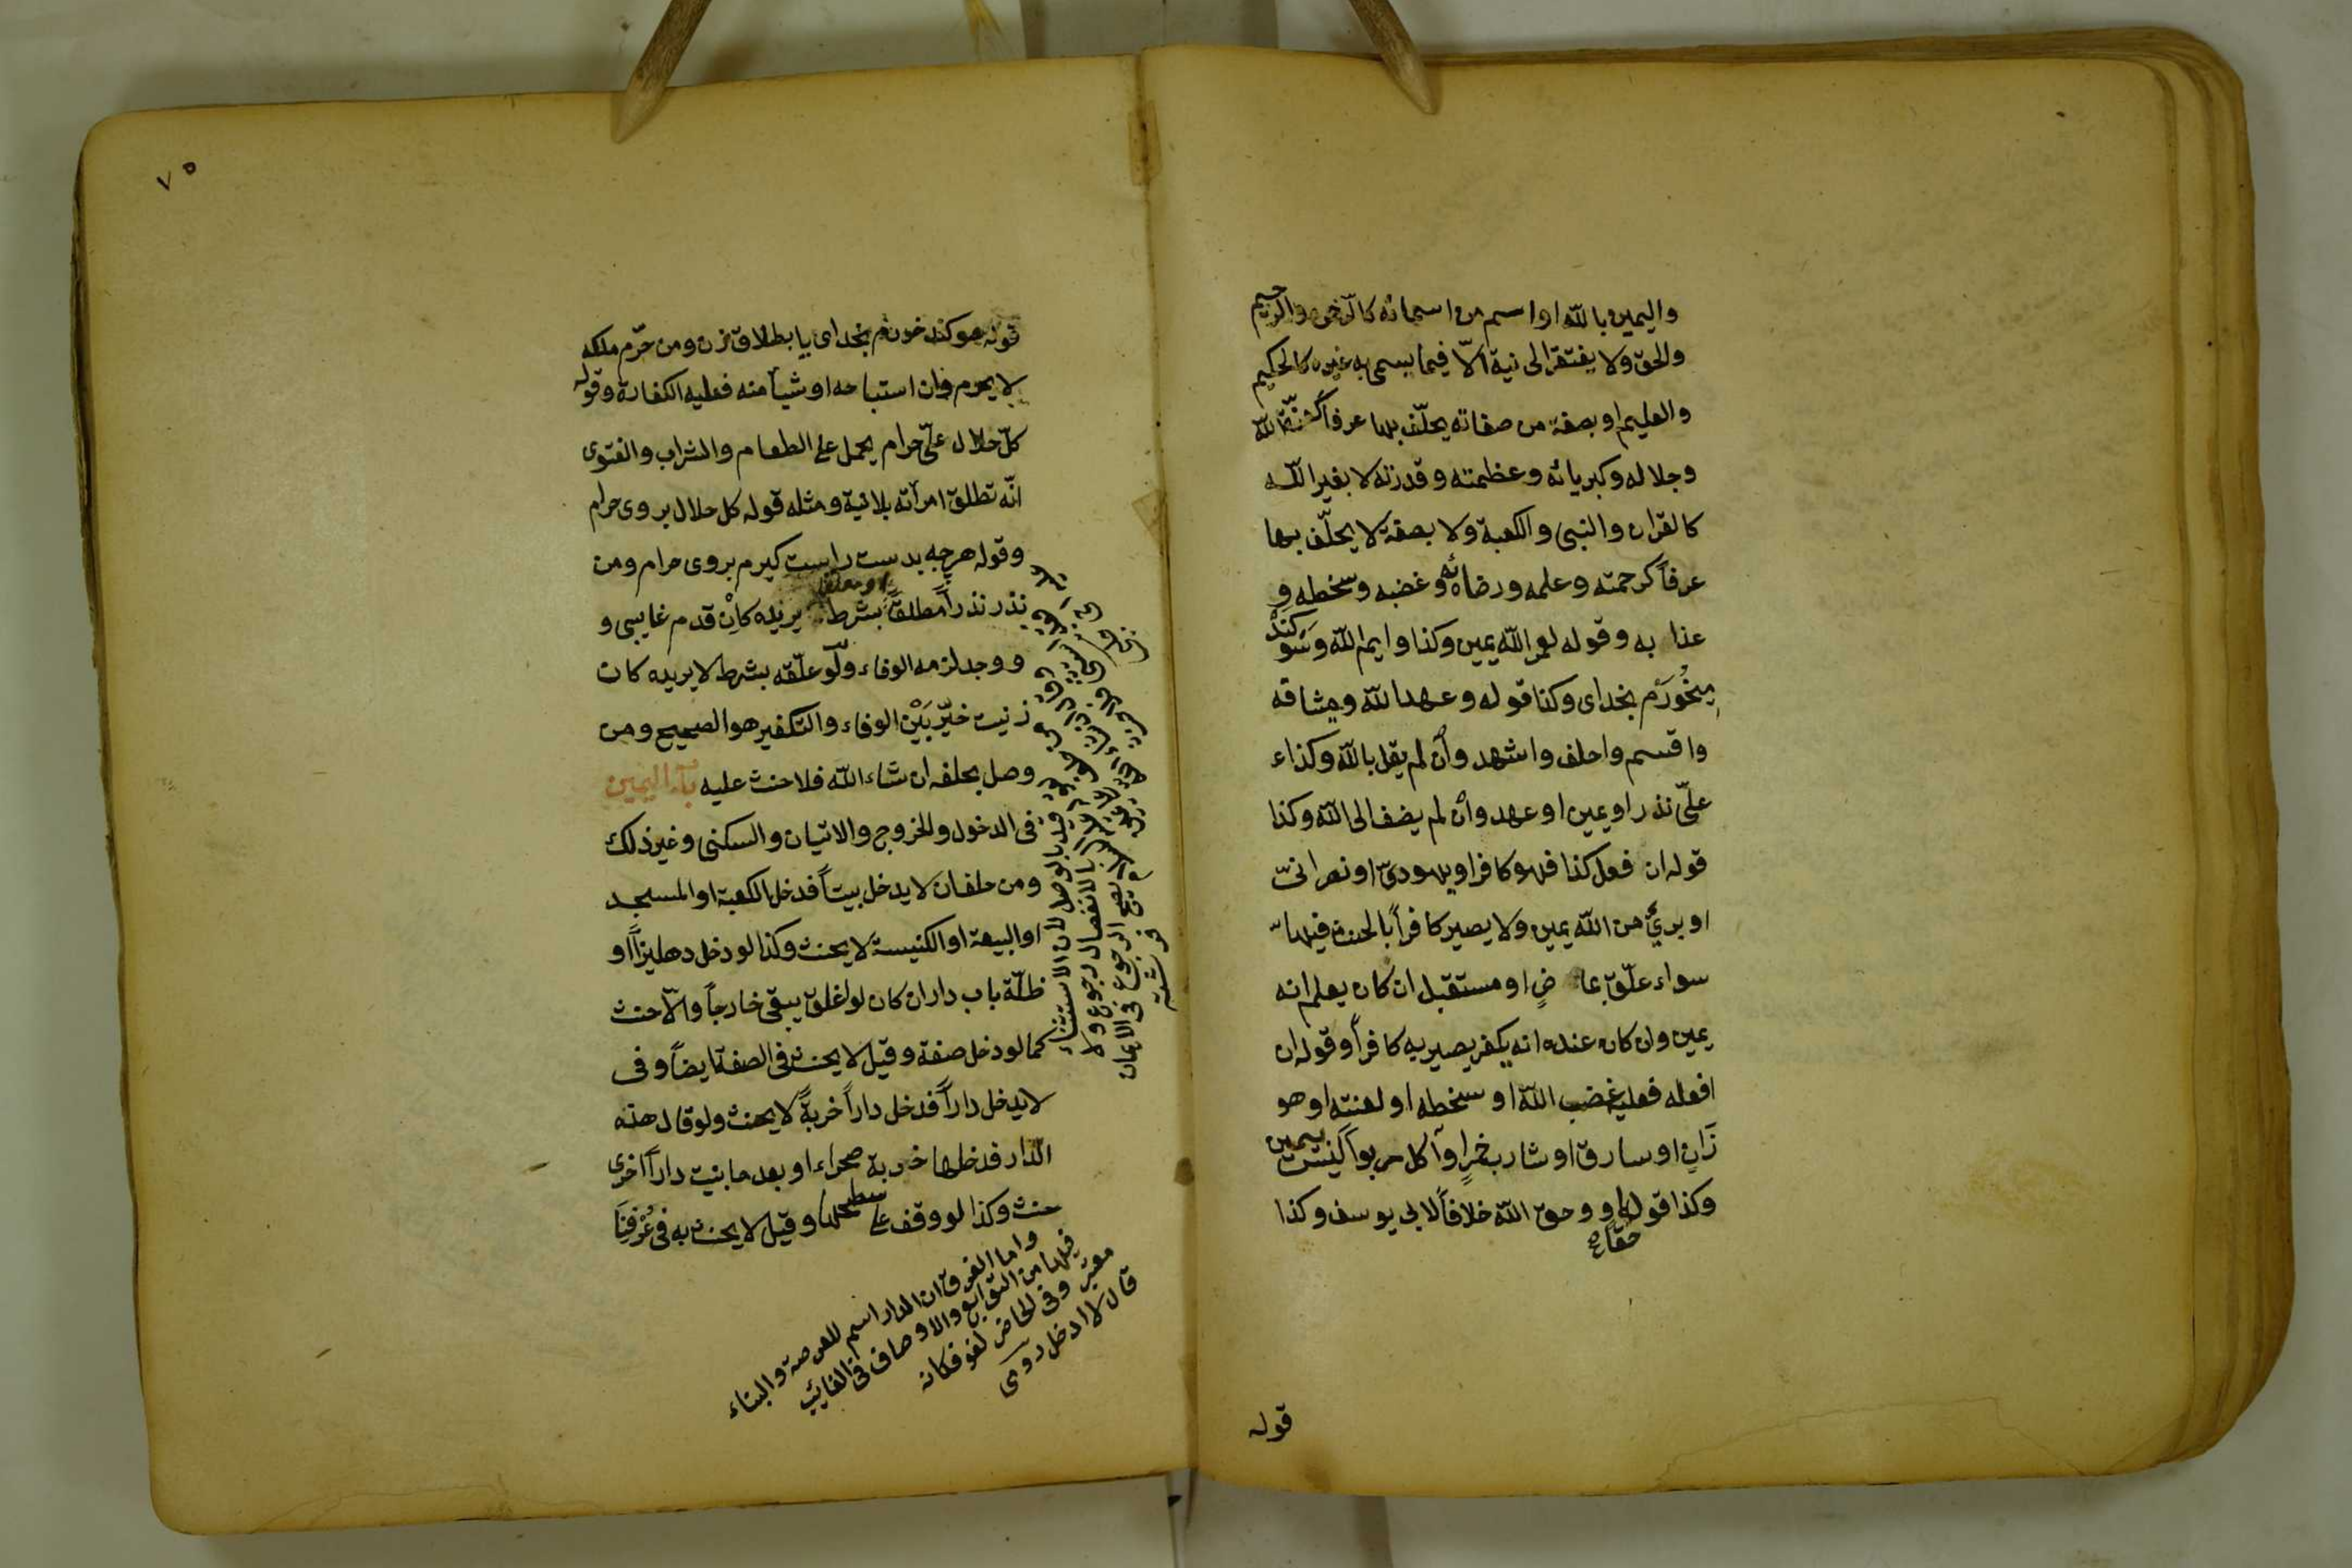 واليمين بالله او اسم من اسمائه كالرحمن والرحيم
والحق ولا يفتقر الى نية الّا فيما يسمى به غيره كالحكيم
والعليم او بصفة من صفاته يحلّف بها عرفاً كعزّة الله
وجلاله وكبريائه وعظمته وقدرته لا بغير الله
كالقران والنبى والكعبة ولا بصفة لا يحلّف بها
عرفاً كرحمته وعلمه ورضائه وغضبه وسخطه و
عذابه وقوله لعمر الله يمين وكذا وايم الله وسَوكَنْد
ميخُورَم بخداى وكذا قوله وعهد الله وميثاقه
واقسم واحلف واشهد وأن لم يقل بالله وكذاء
علىّ نذر او يمين او عهد وأن لم يضف الى الله وكذا
قوله ان فعل كذا فهو كافر او يهودىّ او نصرانىّ
او برئ من الله يمين ولا يصير كافراً بالحنث فيها
سواء علّق بماضٍ او مستقبل ان كان يعلم انه
يمين وان كان عنده انه يكفر يصير به كافراً وقوله ان
افعله فعليه غضب الله او سخطه او لعنته او هو
زَانٍ او سارق او شارب خمرٍ او آكل ربوا ليس بيمين
وكذا قوله حقاً او وحق الله خلافاً لابى يوسف وكذا
قوله
٧٥
قوله سوكند خورم بخداى يا بطلاق زن ومن حرّم ملكه
لا يحرم وان استباحه او شيأ منه فعليه الكفارة وقوله
كلّ حلال علىّ حرام يحمل على الطعام والشراب والفتوى
انّه تطلق امرأته بلا نية ومثله قوله كل حلال بروى حرام
وقوله هرچه بدست راست كيرم بروى حرام ومن
نذر نذراً مطلقاً او معلقا بشرط يريده كاِنْ قدم غايبى و
ووجد لزمه الوفاء ولَو علّقه بشرط لا يريده كان
زنيت خيّر بَيْن الوفاء والتكفير هو الصحيح ومن
وصل بحلفه ان شاء الله فلا حنث عليه باب اليمين
فى الدخول والخروج والاتيان والسكنى وغير ذلك
ومن حلف ان لا يدخل بيتاً فدخل الكعبة او المسجد
او البيعة او الكنيسة لا يحنث وكذا لو دخل دهليزاً او
ظلّة باب دار ان كان لو اغلق يبقى خارجاً والّا حنث
كما لو دخل صفة وقيل لا يحنث فى الصفة ايضاً وفى
لا يدخل داراً فدخل داراً خربةً لا يحنث ولو قال هذه
الدّار فدخلها خربة صحراء او بعد ما بنيت داراً اخرى
حنث وكذا لو وقف على سطحها وقيل لا يحنث به فى عُرْفِنَا
قيد بالوصل لان الاستثناء
بالانفصال رجوع ولا
يصح الرجوع فى الايمان
فرشته
واما الفرق ان الدار اسم للعرصة والبناء
فيها من التوابع والاوصاف فى الغائب
معتبر وفى الحاضر لغو فكانه
قال لا ادخل